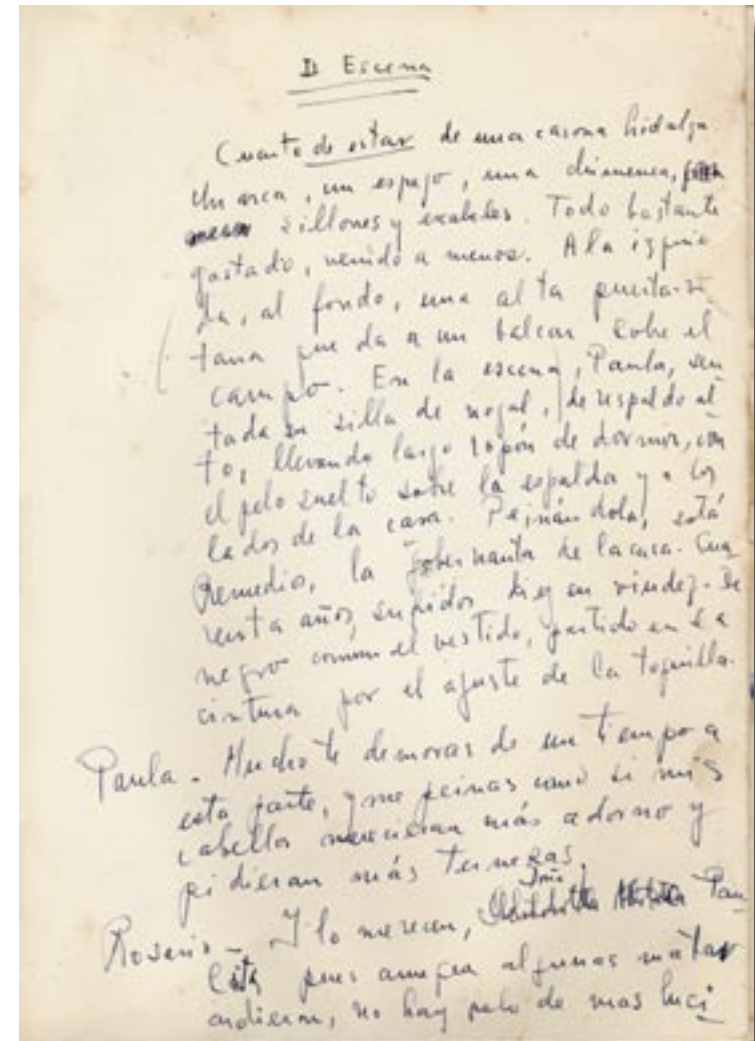 II Escena
Cuarto de estar de una casona hidalga.
Un arca, un espejo, una chimenea,
sillones y escabeles. Todo bastante
gastado, venido a menos. A la izquier
da, al fondo, una alta puerta-ven
tana que da a un balcon sobre el
campo. En la escena, Paula, sen
tada en silla de nogal, de respaldo al
to, llevando largo ropón de dormir, con
el pelo suelto sobre la espalda y a los
lados de la cara. Peinándola, está
Remedio, la gobernanta de la casa. Cua
renta años, en viudez. De
negro común el vestido, partido en la
cintura por el ajuste de la toquilla.
Paula - Mucho te demoras de un tiempo a
esta parte, y me peinas como si mis
cabellos merecieran más adorno y
pidieran más ternezas.
Rosario - Y lo merecen, Pau
lita, pues algunas matas
ardieron, no hay pelo de mas luci